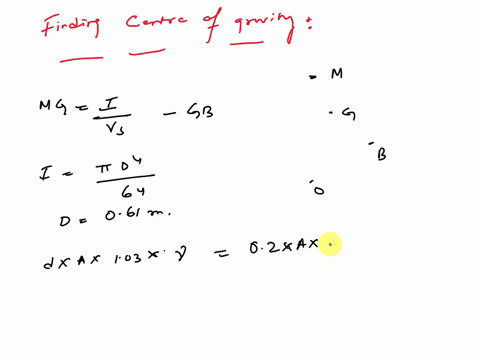 Finding Centre of gravity :
MG = I / Vs - GB
I = π D⁴ / 64
D = 0.61 m.
d x A x 1.03 x γ = 0.2 x A x
M
G
B
O